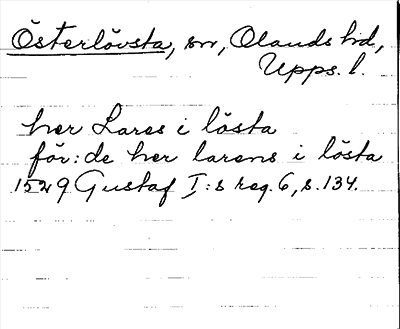 Österlövsta, sn, Olands hd,
Upps. l.
her Lares i lösta
för: de her larens i lösta
1529 Gustaf I:s reg. 6, s. 134.